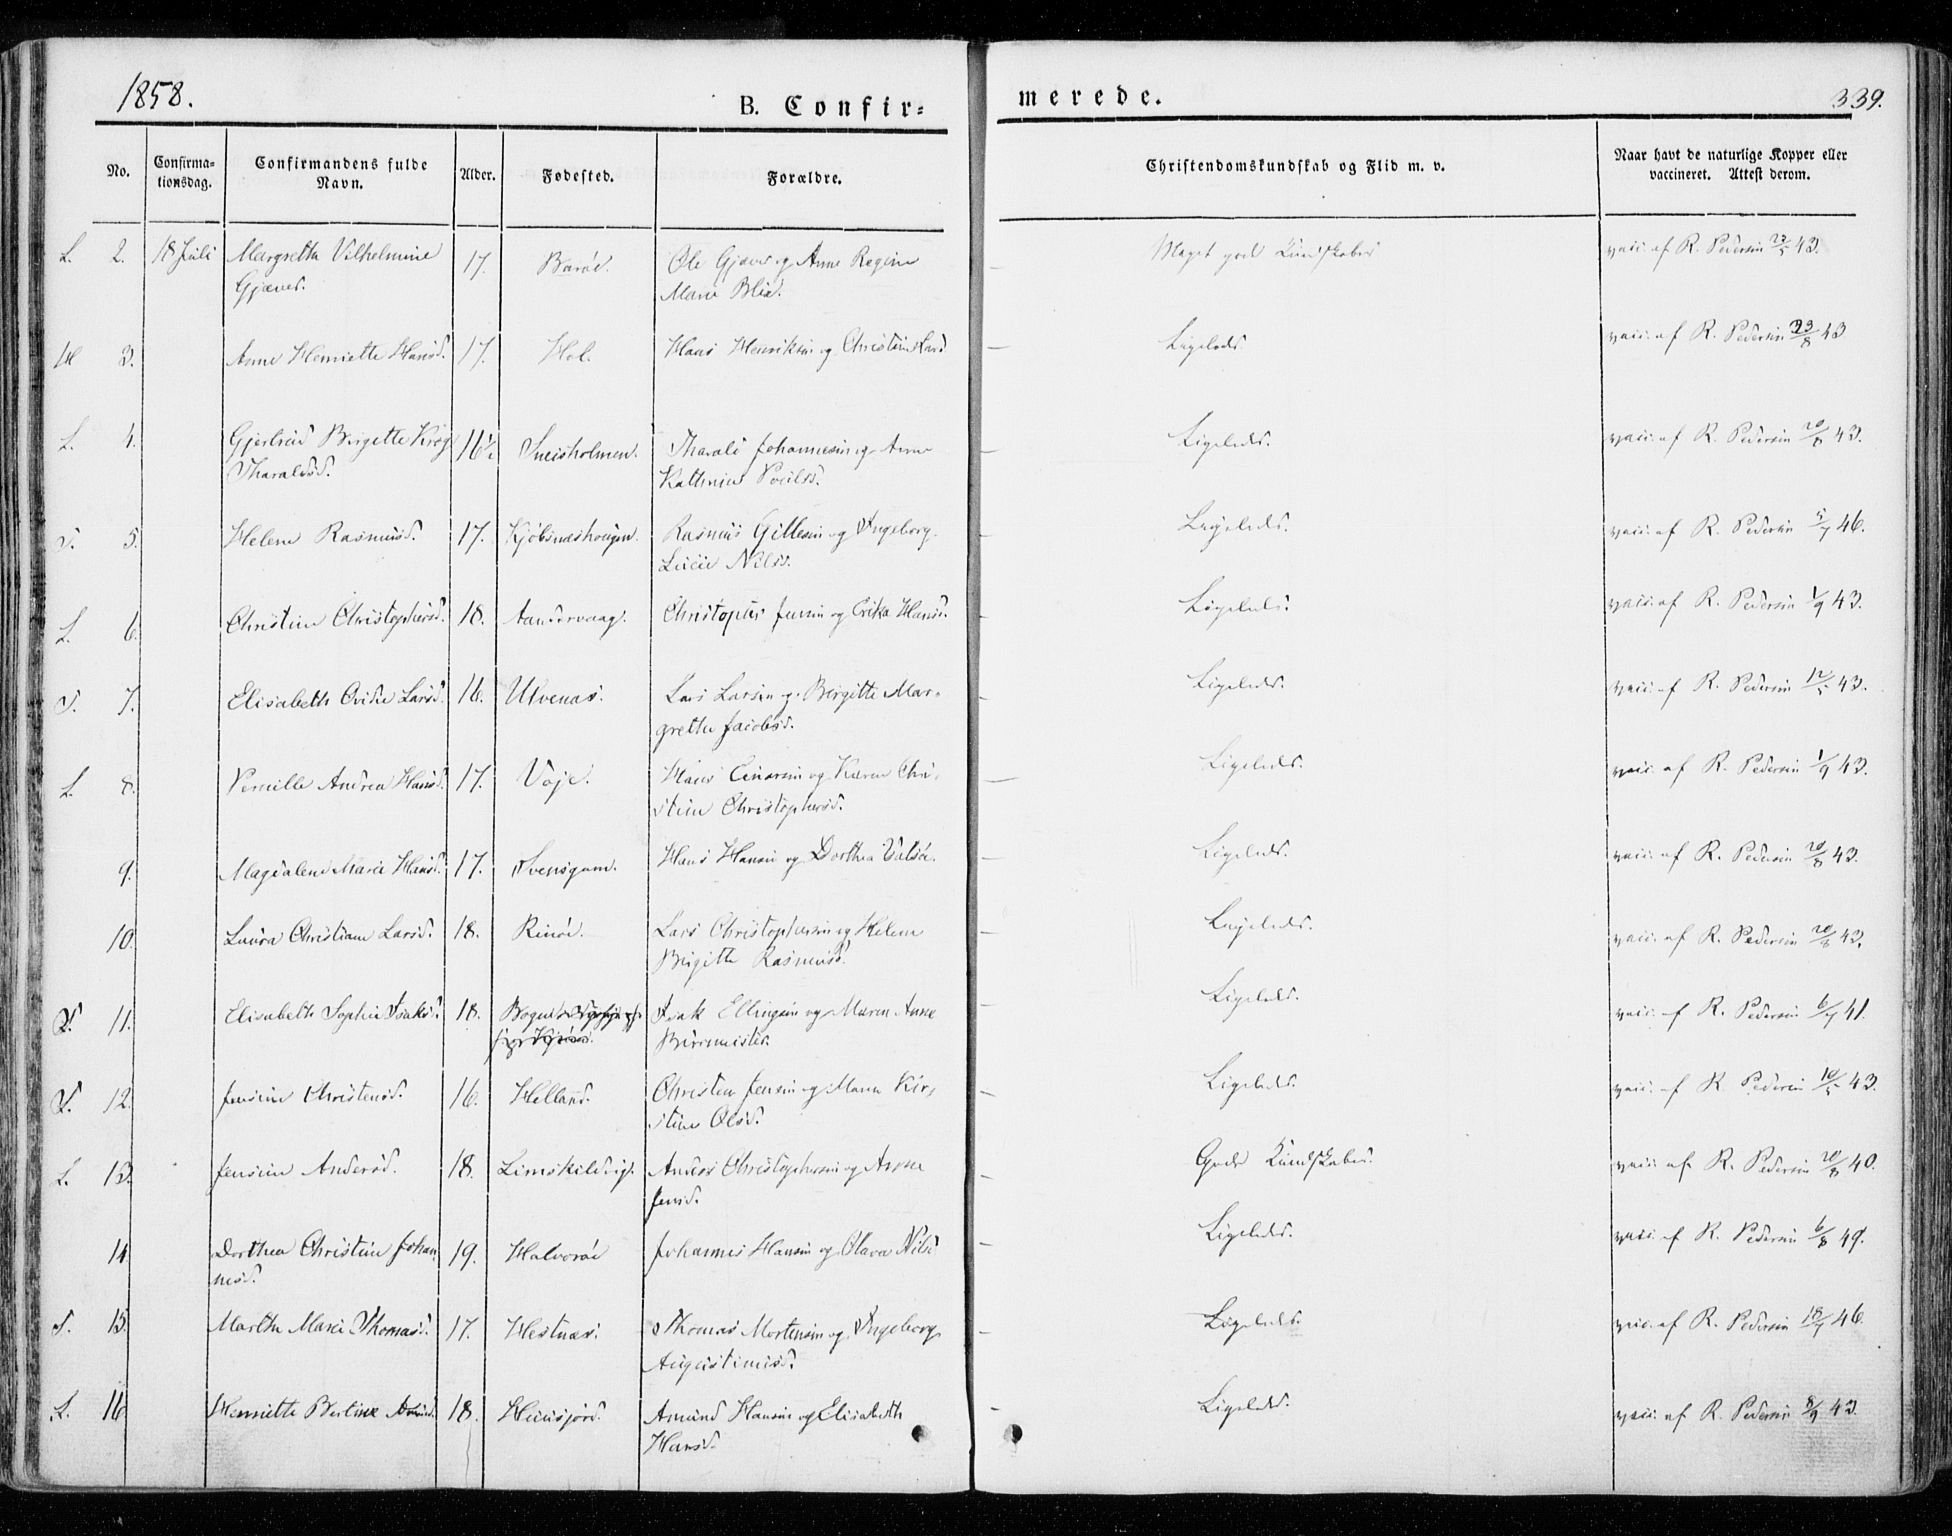 1858.
B. Confir=
merede.
339.
No.
Confirma=
tionsdag.
Confirmandens fulde
Navn.
Alder.
Fødested.
Forældre.
Christendomskundskab og Flid m. v.
Naar havt de naturlige Kopper eller
vaccineret. Attest derom.
L. 2. 18 Juli Margrethe Vilhelmine 17. Barøe. Ole Gjæver og Anne Regine Meget gode Kundskaber vacc. af R. Pedersen 23/5 43.
Gjæver. Marie Blix.
H 3. Anne Henriette Hansd. 17. Hol. Hans Henriksen og Christine Larsd Ligeledes. vacc. af R. Pedersen 23/8 43
L. 4. Gjertrud Birgitte Krog 16½ Sneisholmen. Tharald Johannesen og Anne Ligeledes. vacc. af R. Pedersen 20/8 43.
Tharaldsd. Kathrine Poulsd.
T. 5. Helene Rasmusd. 17. Kjøbsnæshougen. Rasmus Gillesen og Ingeborg Ligeledes. vacc. af R. Pedersen 5/7 46.
Lucie Nilsd.
L. 6. Christine Christophersd. 18. Sandorvaag. Christopher Jensen og Erika Hansd. Ligeledes. vacc. af R. Pedersen 1/9 43.
T. 7. Elisabeth Ovidie Larsd. 16. Ulvenæs. Lars Larsen og Birgitte Mar- Ligeledes. vacc. af R. Pedersen 12/5 43.
grethe Jacobsd.
L. 8. Pernille Andrea Hansd. 17. Voje. Hans Einarsen og Karen Chri- Ligeledes. vacc. af R. Pedersen 1/9 43.
stine Christophersd.
9. Magdalene Marie Hansd. 17. Svensgam. Hans Hansen og Dorthea Valsøe. Ligeledes. vacc. af R. Pedersen 20/8 43.
10. Laura Christiane Larsd. 18. Rinøe. Lars Christophersen og Helene Ligeledes. vacc. af R. Pedersen 20/8 43.
Birgitte Rasmusd.
T. 11. Elisabeth Sophie Isaksd. 18. Isak Ellingsen og Maren Anne Ligeledes. vacc. af R. Pedersen 6/7 41.
Burmeister.
T. 12. Jensine Christensd. 16. Helland. Christen Jensen og Maren Kir- Ligeledes. vacc. af R. Pedersen 10/5 43.
stine Olsd.
L. 13. Jensine Andersd. 18. Limskilsvig. Anders Christophersen og Anne Gode Kundskaber. vacc. af R. Pedersen 20/8 40.
Jensd.
14. Dorthea Christine Johan 19. Halvorøe Johannes Hansen og Olava Nilsd Ligeledes. vacc. af R. Pedersen 6/8 49.
nesd.
T. 15. Marthe Marie Thomasd. 17. Hestnæs. Thomas Mortensen og Ingeborg Ligeledes. vacc. af R. Pedersen 18/7 46.
Augustinusd.
L. 16. Henriette Bertine 18. Husjord. Amund Hansen og Elisabeth Ligeledes. vacc. af R. Pedersen 8/9 43.
Hansd.